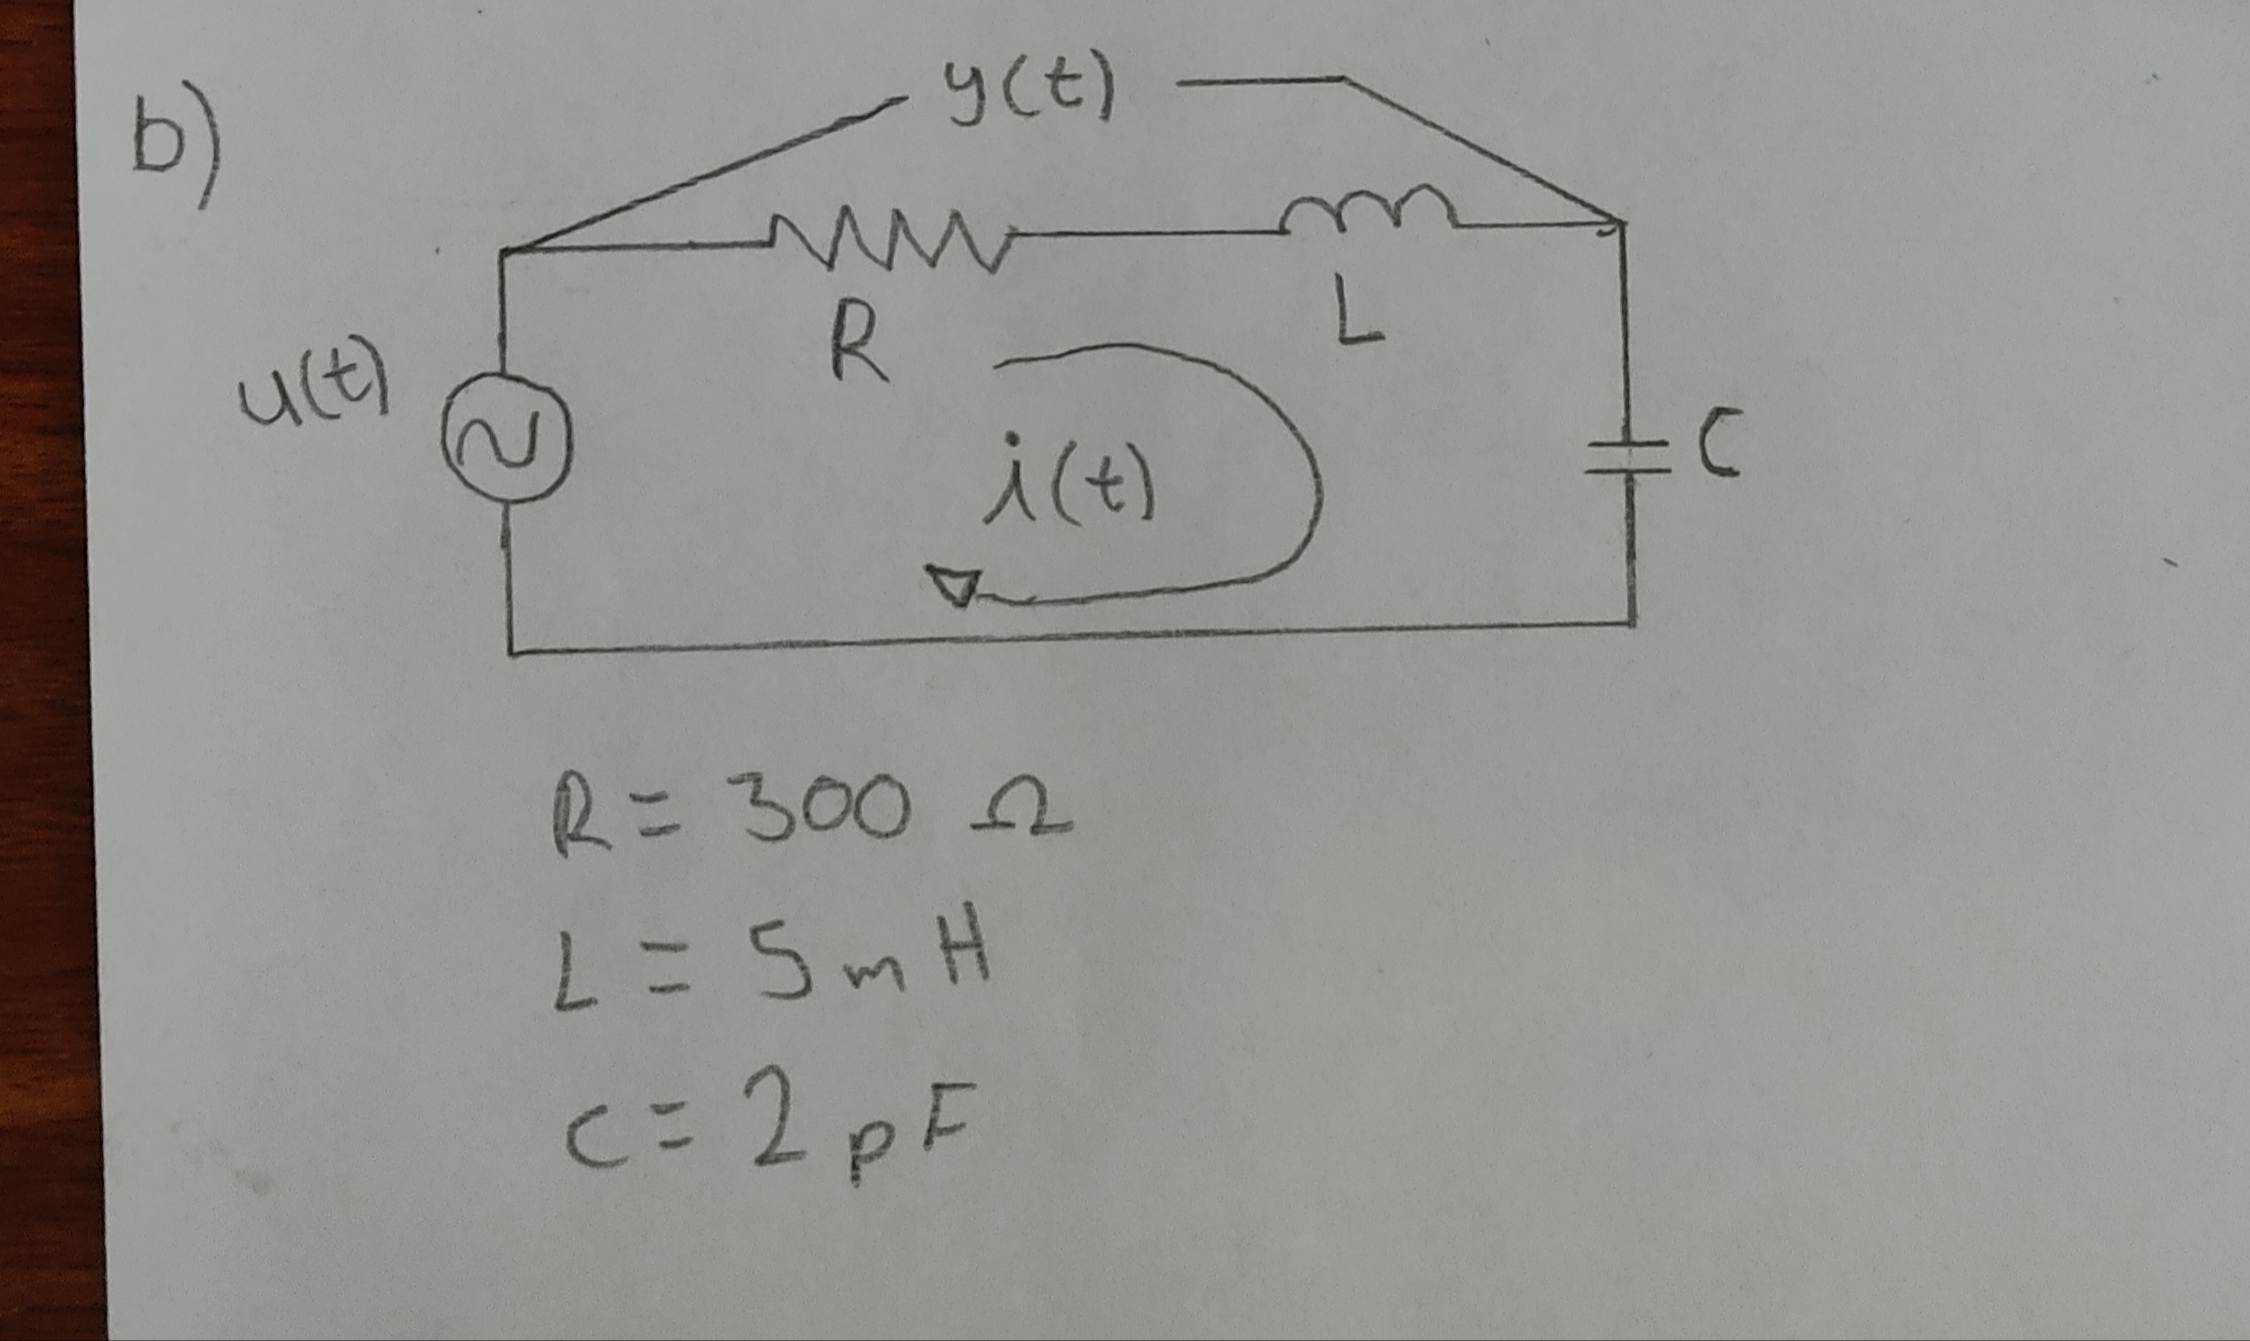 b)
y(t)
R
L
u(t)
i(t)
C
R = 300 Ω
L = 5 m H
C = 2 p F